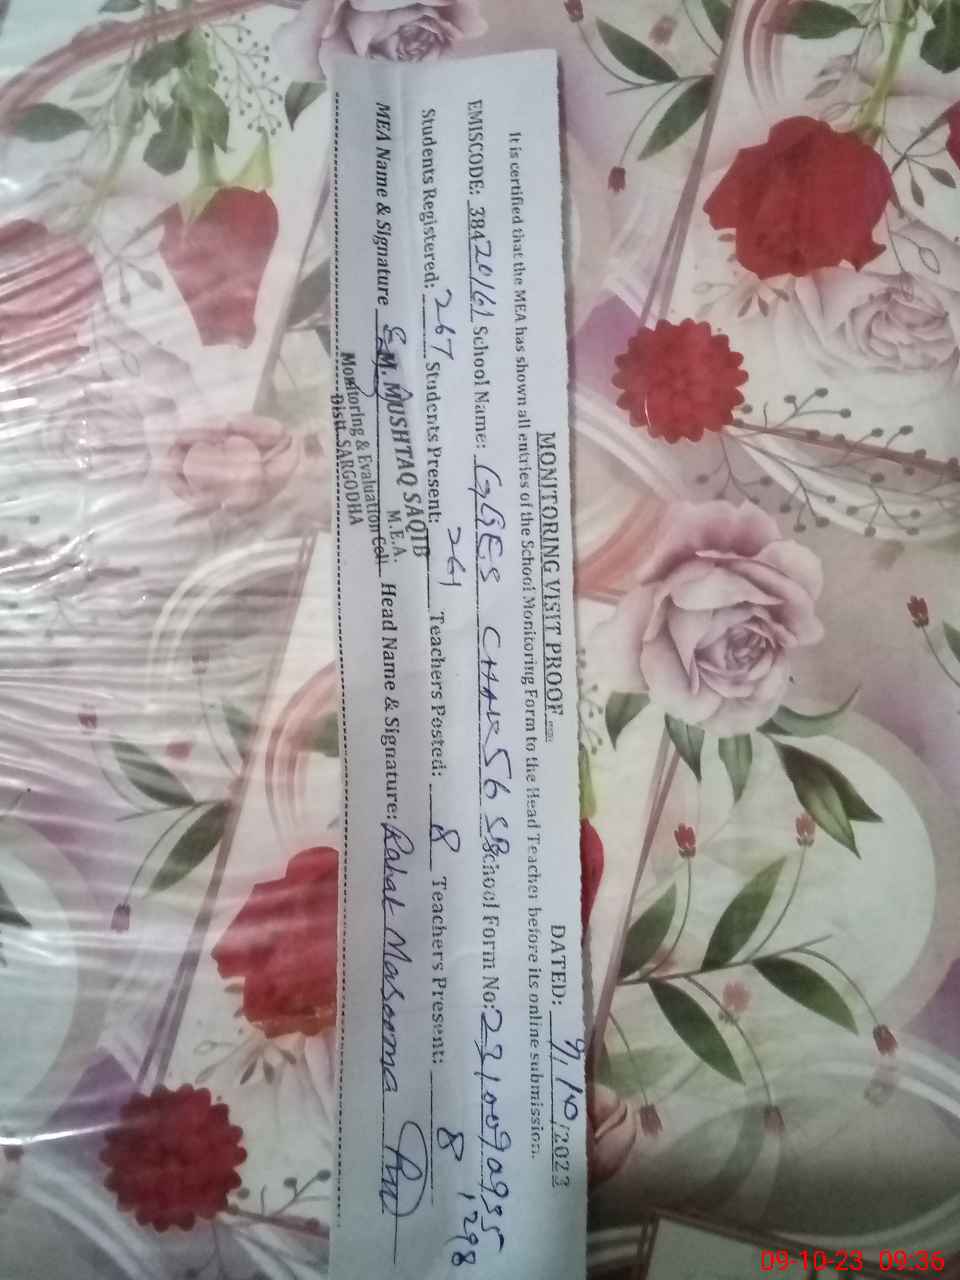 MONITORING VISIT PROOF
DATED: 9/10/2023
It is certified that the MEA has shown all entries of the School Monitoring Form to the Head Teacher before its online submission.
EMISCODE: 38420161 School Name: GGES CHAK 56 SB School Form No: 231009 0935
1298
Students Registered: 267 Students Present: 261 Teachers Posted: 8 Teachers Present: 8
MEA Name & Signature M. MUSHTAQ SAQIB Head Name & Signature: Rahat Masooma
M.E.A.
Monitoring & Evaluation Cell
Distt. SARGODHA
09-10-23 09:36